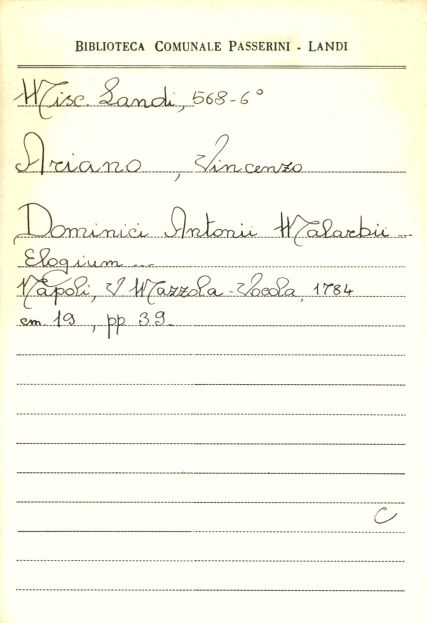 BIBLIOTECA COMUNALE PASSERINI - LANDI
Misc. Landi, 568-6°
Ariano, Vincenzo
Dominici Antonii Malarbii ...
Elogium ...
Napoli, V Mazzola-Vocola, 1784
cm 19, pp 39_
C